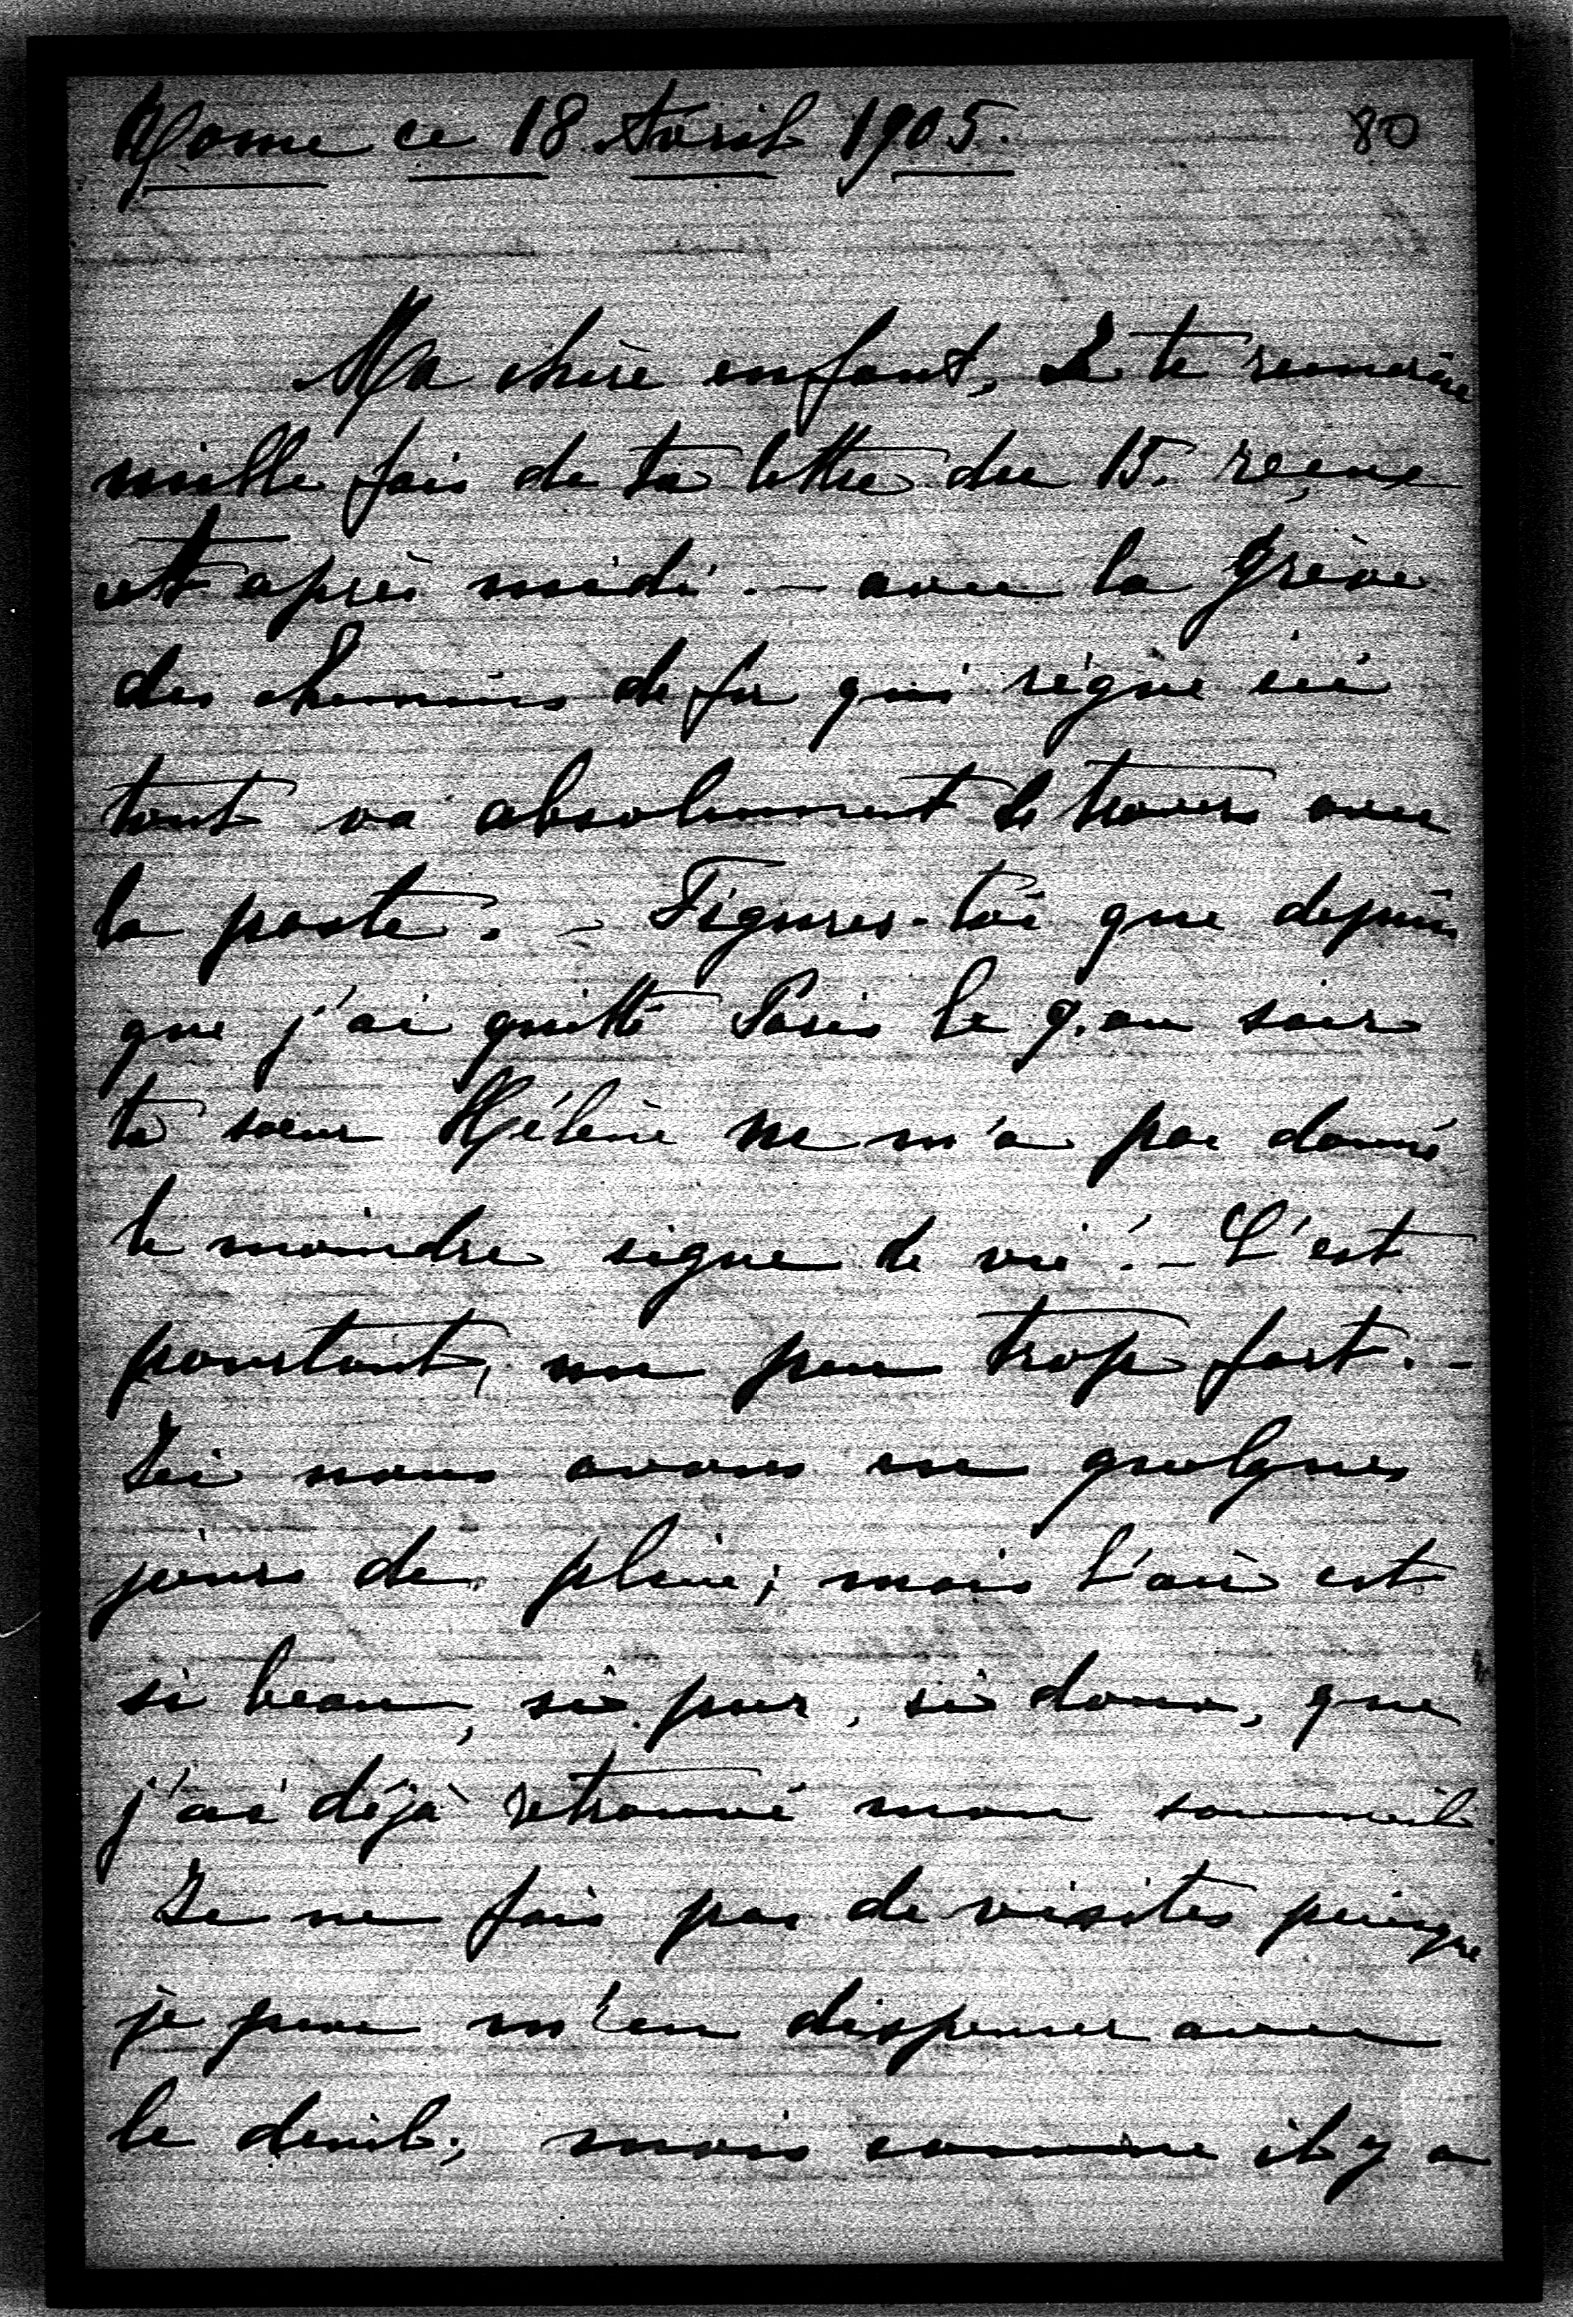 Rome ce 18 Avril 1905.
80
Ma chère enfant, Je te remercie
mille fois de ta lettre du 15. reçue
cet après midi. – avec la Grève
des chemins de fer qui règne ici
tout va absolument de travers avec
la poste. – Figures-toi que depuis
que j'ai quitté Paris le 9. au soir
ta sœur Hélène ne m'a pas donné
le moindre signe de vie! – C'est
pourtant, un peu trop fort. –
Ici nous avons eu quelques
jours de pluie; mais l'air est
si beau, si pur, si doux, que
j'ai déjà retrouvé mon sommeil.
Je ne fais pas de visites puisque
je peux m'en dispenser avec
le deuil; mais comme il y a